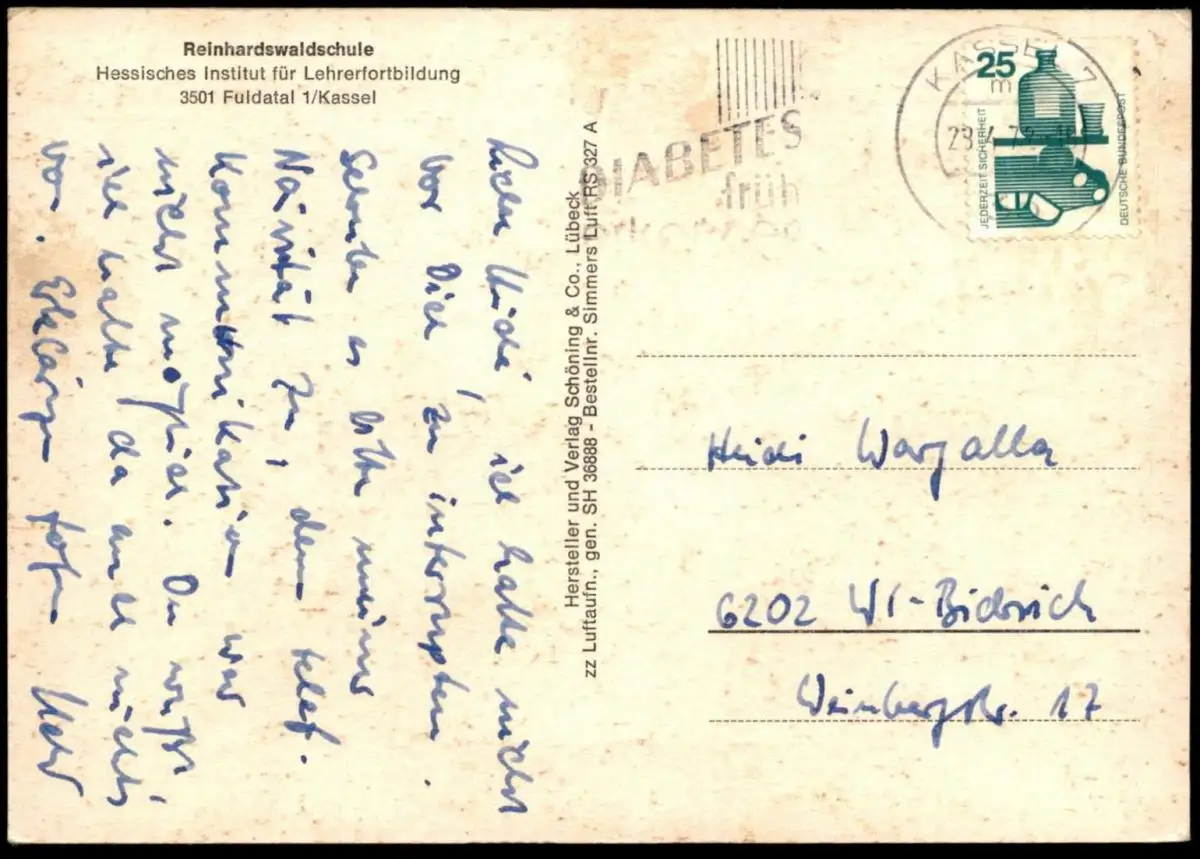 Reinhardswaldschule
Hessisches Institut für Lehrerfortbildung
3501 Fuldatal 1/Kassel
Liebe Heidi, ich hatte nicht
vor Dich, zu interrupten.
Schreibe es bitte meiner
Naivität zu, denn telef.
Kommunikation war
nicht möglich. Du weißt,
ich halte da auch nichts
von.
Hersteller und Verlag Schöning & Co., Lübeck
zz Luftaufn., gen. SH 36888 - Bestellnr. Simmers Luft RS 327 A
DIABETES
früh
KASSEL 7
m
25
JEDERZEIT SICHERHEIT
DEUTSCHE BUNDESPOST
Heidi Wargalla
6202 WI-Biebrich
Weinbergstr. 17